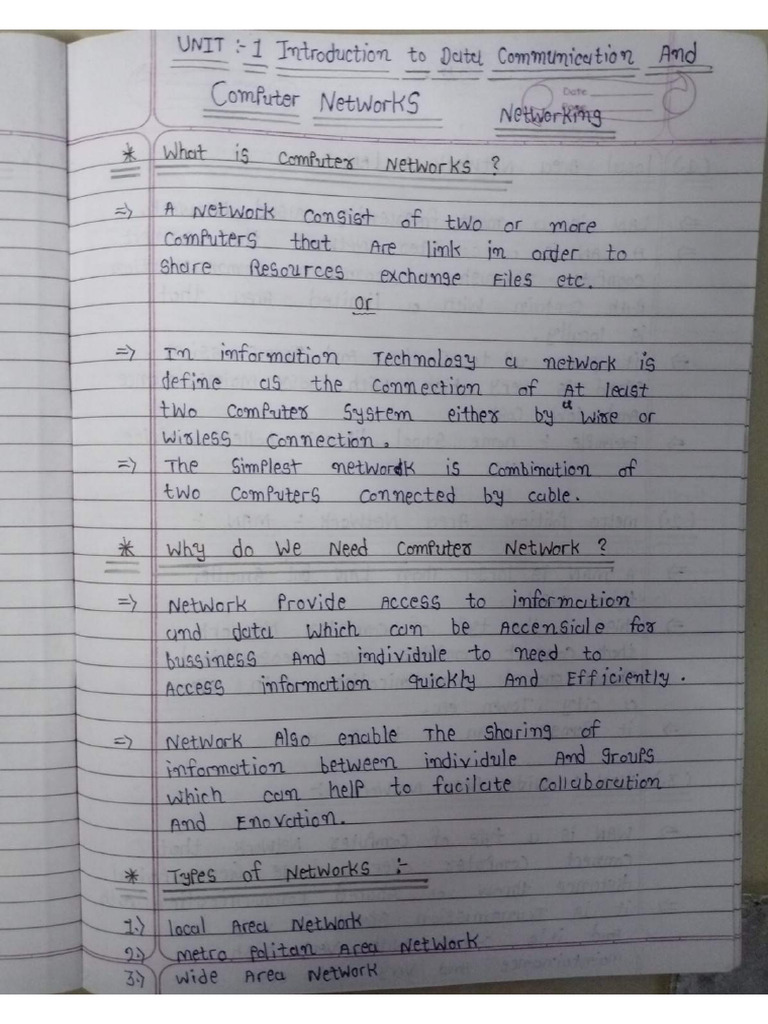 UNIT :- 1 Introduction to Data Communication And
Computer Networks Networking
Date
* What is Computer Networks ?
=> A Network Consist of two or more
Computers that Are link in order to
Share Resources exchange Files etc.
or
=> In information Technology a network is
define as the Connection of At least
two Computer System either by a wire or
Wirless Connection.
=> The Simplest network is Combination of
two Computers Connected by cable.
* Why do We Need Computer Network ?
=> Network Provide Access to information
and data Which can be Accensiale for
bussiness And individule to need to
Access information quickly And Efficiently.
=> Network Also enable The Sharing of
information between individule And groups
Which can help to facilate Collaboration
And Enovation.
* Types of Networks :-
1.) local Area Network
2.) metro politan Area Network
3.) Wide Area Network